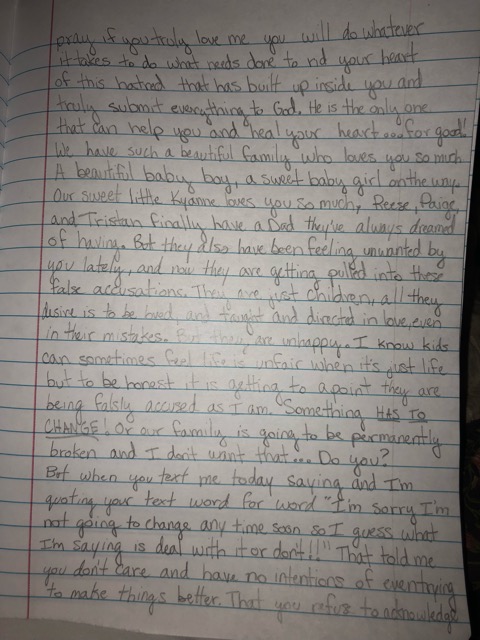 pray if you truly love me you will do whatever
it takes to do what needs done to rid your heart
of this hatred that has built up inside you and
truly submit everything to God. He is the only one
that can help you and heal your heart...for good!
We have such a beautiful family who loves you so much
A beautiful baby boy, a sweet baby girl on the way.
Our sweet little Kyanne loves you so much, Reese, Paige,
and Tristan finally have a Dad they've always dreamed
of having. But they also have been feeling unwanted by
you lately, and now they are getting pulled into these
false accusations. They are just children, all they
desire is to be loved and taught and directed in love, even
in their mistakes. But they are unhappy. I know kids
can sometimes feel life is unfair when it's just life
but to be honest it is getting to a point they are
being falsly accused as I am. Something HAS TO
CHANGE! Or our family is going to be permanently
broken and I don't want that... Do you?
But when you text me today saying and I'm
quoting your text word for word "I'm sorry I'm
not going to change any time soon so I guess what
I'm saying is deal with it or don't!!" That told me
you don't care and have no intentions of even trying
to make things better. That you refuse to acknowledge